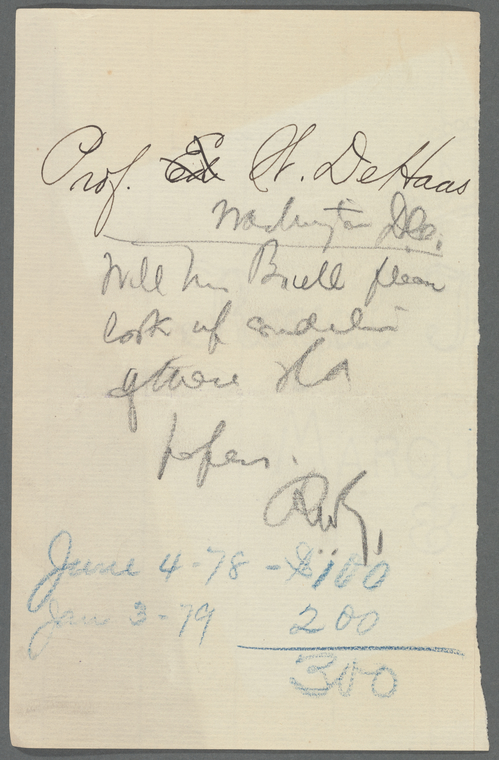 Prof. Ed W. DeHaas
Washington D.C.
Will Mr Buell please
look up condition
of these
papers.
RWG
June 4-78 - $100
Jan 3-79 200
300